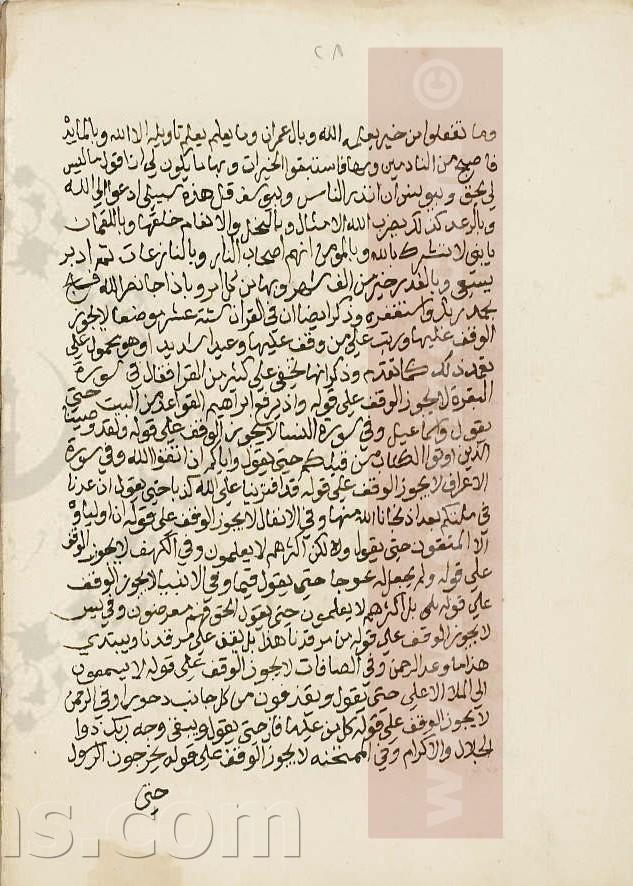 ٢٨
وما تفعلوا من خير يعلمه الله وبالعمران وما يعلم تاويله الا الله وبالمايدة
فاصبح من النادمين وبها فاستبقوا الخيرات وبها ما يكون لي ان اقول ما ليس
لي بحق وبيونس ان انذر الناس وبيوسف قل هذه سبيلي ادعوا الى الله
وبالرعد كذلك يضرب الله الامثال وبالنحل والانعام خلقها وبلقمان
يابني لا تشرك بالله وبالمومن انهم اصحاب النار وبالنازعات ثم ادبر
يسعى وبالقدر خير من الف شهر وبها من كل امر وباذا جا نصر الله فسبح
بحمد ربك واستغفره وذكر ايضا ان في القران ستة عشر موضعا لا يجوز
الوقف عليها ورتب على من وقف عليها وعيدا شديدا وهو محمول على
تعمد ذلك كما تقدم وذكر انها تخفى على كثير من القرا فقال في سورة
البقرة لا يجوز الوقف على قوله واذ يرفع ابراهيم القواعد من البيت حتى
يقول واسماعيل وفي سورة النسا لا يجوز الوقف على قوله ولقد وصينا
الذين اوتوا الكتاب من قبلكم حتى يقول واياكم ان اتقوا الله وفي سورة
الاعراف لا يجوز الوقف على قوله قد افترينا على الله كذبا حتى يقول ان عدنا
في ملتكم بعد اذ نجانا الله منها وفي الانفال لا يجوز الوقف على قوله ان اولياؤه
الا المتقون حتى يقول ولكن اكثرهم لا يعلمون وفي الكهف لا يجوز الوقف
على قوله ولم يجعل له عوجا حتى يقول قيما وفي الانبيا لا يجوز الوقف
على قوله بل اكثرهم لا يعلمون حتى يقول الحق فهم معرضون وفي يس
لا يجوز الوقف على قوله من مرقدنا هذا بل يقف على مرقدنا ويبتدي
هذا ما وعد الرحمن وفي الصافات لا يجوز الوقف على قوله لا يسمعون
الى الملا الاعلى حتى يقول ويقذفون من كل جانب دحورا وفي الرحمن
لا يجوز الوقف على قوله كل من عليها فان حتى يقول ويبقى وجه ربك ذوا
الجلال والاكرام وفي الممتحنه لا يجوز الوقف على قوله يخرجون الرسول
حتى
ns.com